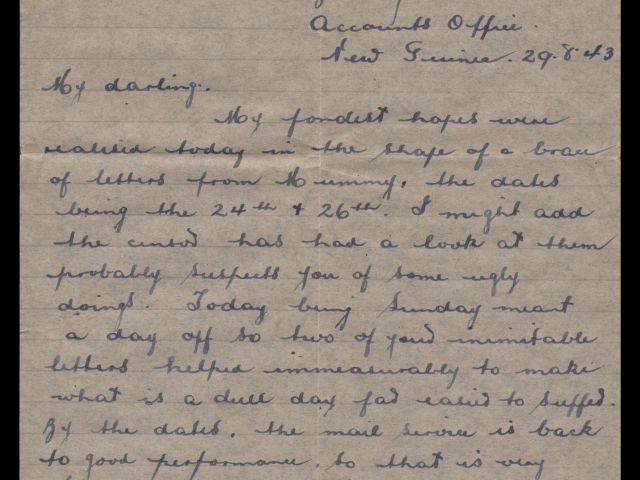 Accounts Office.
New Guinea. 29.8.43
My darling.
My fondest hopes were
realised today in the shape of a brace
of letters from Mummy, the dates
being the 24th & 26th. I might add
the censor has had a look at them
probably suspects you of some ugly
doings. Today being Sunday meant
a day off so two of your inimitable
letters helped immeasurably to make
what is a dull day far easier to suffer.
By the dates, the mail service is back
to good performance, so that is very